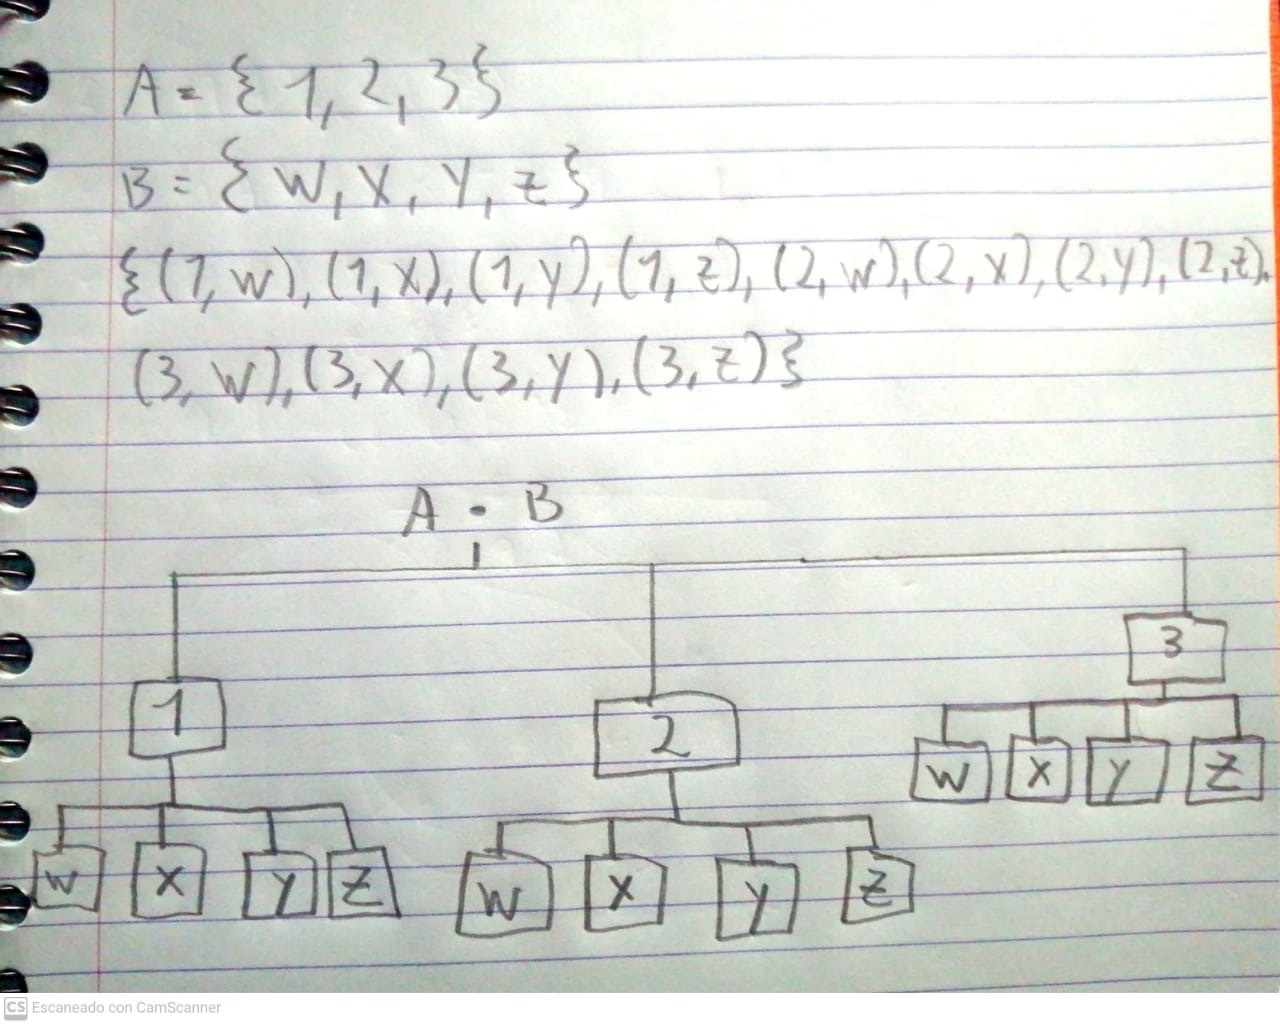 A = {1, 2, 3}
B = {W, X, Y, Z}
{(1, W), (1, X), (1, Y), (1, Z), (2, W), (2, X), (2, Y), (2, Z),
(3, W), (3, X), (3, Y), (3, Z)}
A · B
1 2 3
W X Y Z W X Y Z W X Y Z
CS Escaneado con CamScanner